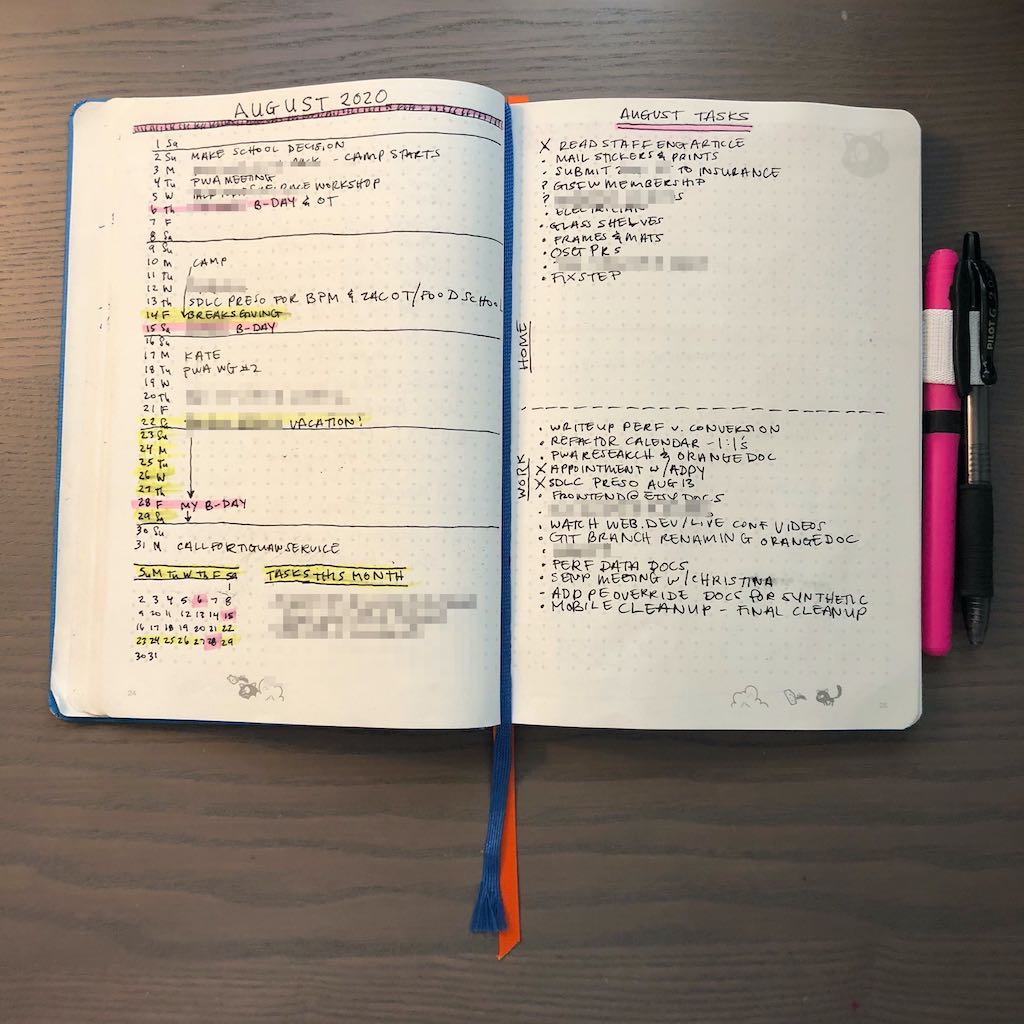 AUGUST 2020
1 Sa
2 Su MAKE SCHOOL DECISION
3 M - CAMP STARTS
4 Tu PWA MEETING
5 W WORKSHOP
6 Th B-DAY & OT
7 F
8 Sa
9 Su
10 M CAMP
11 Tu
12 W
13 Th SDLC PRESO FOR BPM & ZAC OT/FOOD SCHOOL
14 F BREAKSGIVING
15 Sa B-DAY
16 Su
17 M KATE
18 Tu PWA WG #2
19 W
20 Th
21 F
22 S VACATION!
23 Su
24 M
25 Tu
26 W
27 Th
28 F MY B-DAY
29 Sa
30 Su
31 M CALL FOR TIGUAN SERVICE
Su M Tu W Th F Sa
1
2 3 4 5 6 7 8
9 10 11 12 13 14 15
16 17 18 19 20 21 22
23 24 25 26 27 28 29
30 31
TASKS THIS MONTH
24
AUGUST TASKS
HOME
X READ STAFF ENG ARTICLE
• MAIL STICKERS & PRINTS
• SUBMIT TO INSURANCE
? GISFW MEMBERSHIP
? S
• ELECTRICIAN
• GLASS SHELVES
• FRAMES & MATS
• OSG PRS
•
• FIX STEP
WORK
• WRITE UP PERF V. CONVERSION
• REFACTOR CALENDAR - 1:1's
• PWA RESEARCH & ORANGE DOC
X APPOINTMENT W/ ADDY
X SDLC PRESO AUG 13
• FRONTEND@ETSY DOCS
•
• WATCH WEB.DEV/LIVE CONF VIDEOS
• GIT BRANCH RENAMING ORANGE DOC
•
• PERF DATA DOCS
• SEND MEETING W/ CHRISTINA
- ADD PE OVERRIDE DOCS FOR SYNTHETIC
• MOBILE CLEANUP - FINAL CLEANUP
25
PILOT G-2